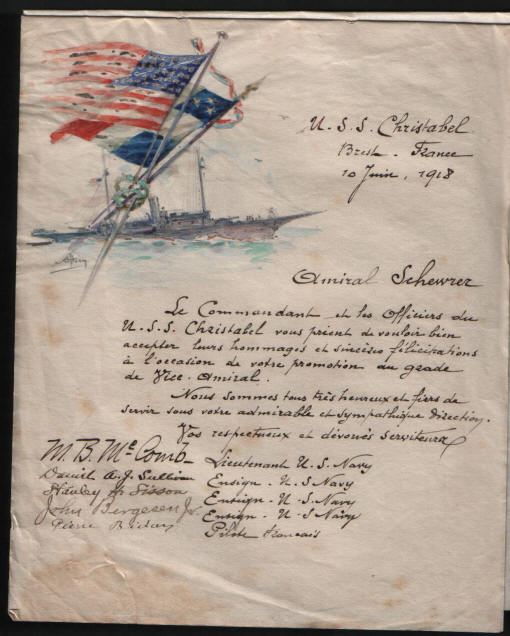 U.S.S. Christabel
Brest - France
10 Juin, 1918
Amiral Schewrer
Le Commandant et les Officiers du
U.S.S. Christabel vous prient de vouloir bien
accepter leurs hommages et sincères félicitations
à l'occasion de votre promotion au grade
de Vice-Amiral.
Nous sommes tous très heureux et fiers de
servir sous votre admirable et sympathique direction.
Vos respectueux et dévoués serviteurs
M. B. McComb - Lieutenant U.S. Navy
Daniel A. J. Sullivan Ensign - U.S Navy
Stanley Sisson Ensign - U.S Navy
John Bergesen Jr. Ensign - U S Navy
Pierre Pilote francais